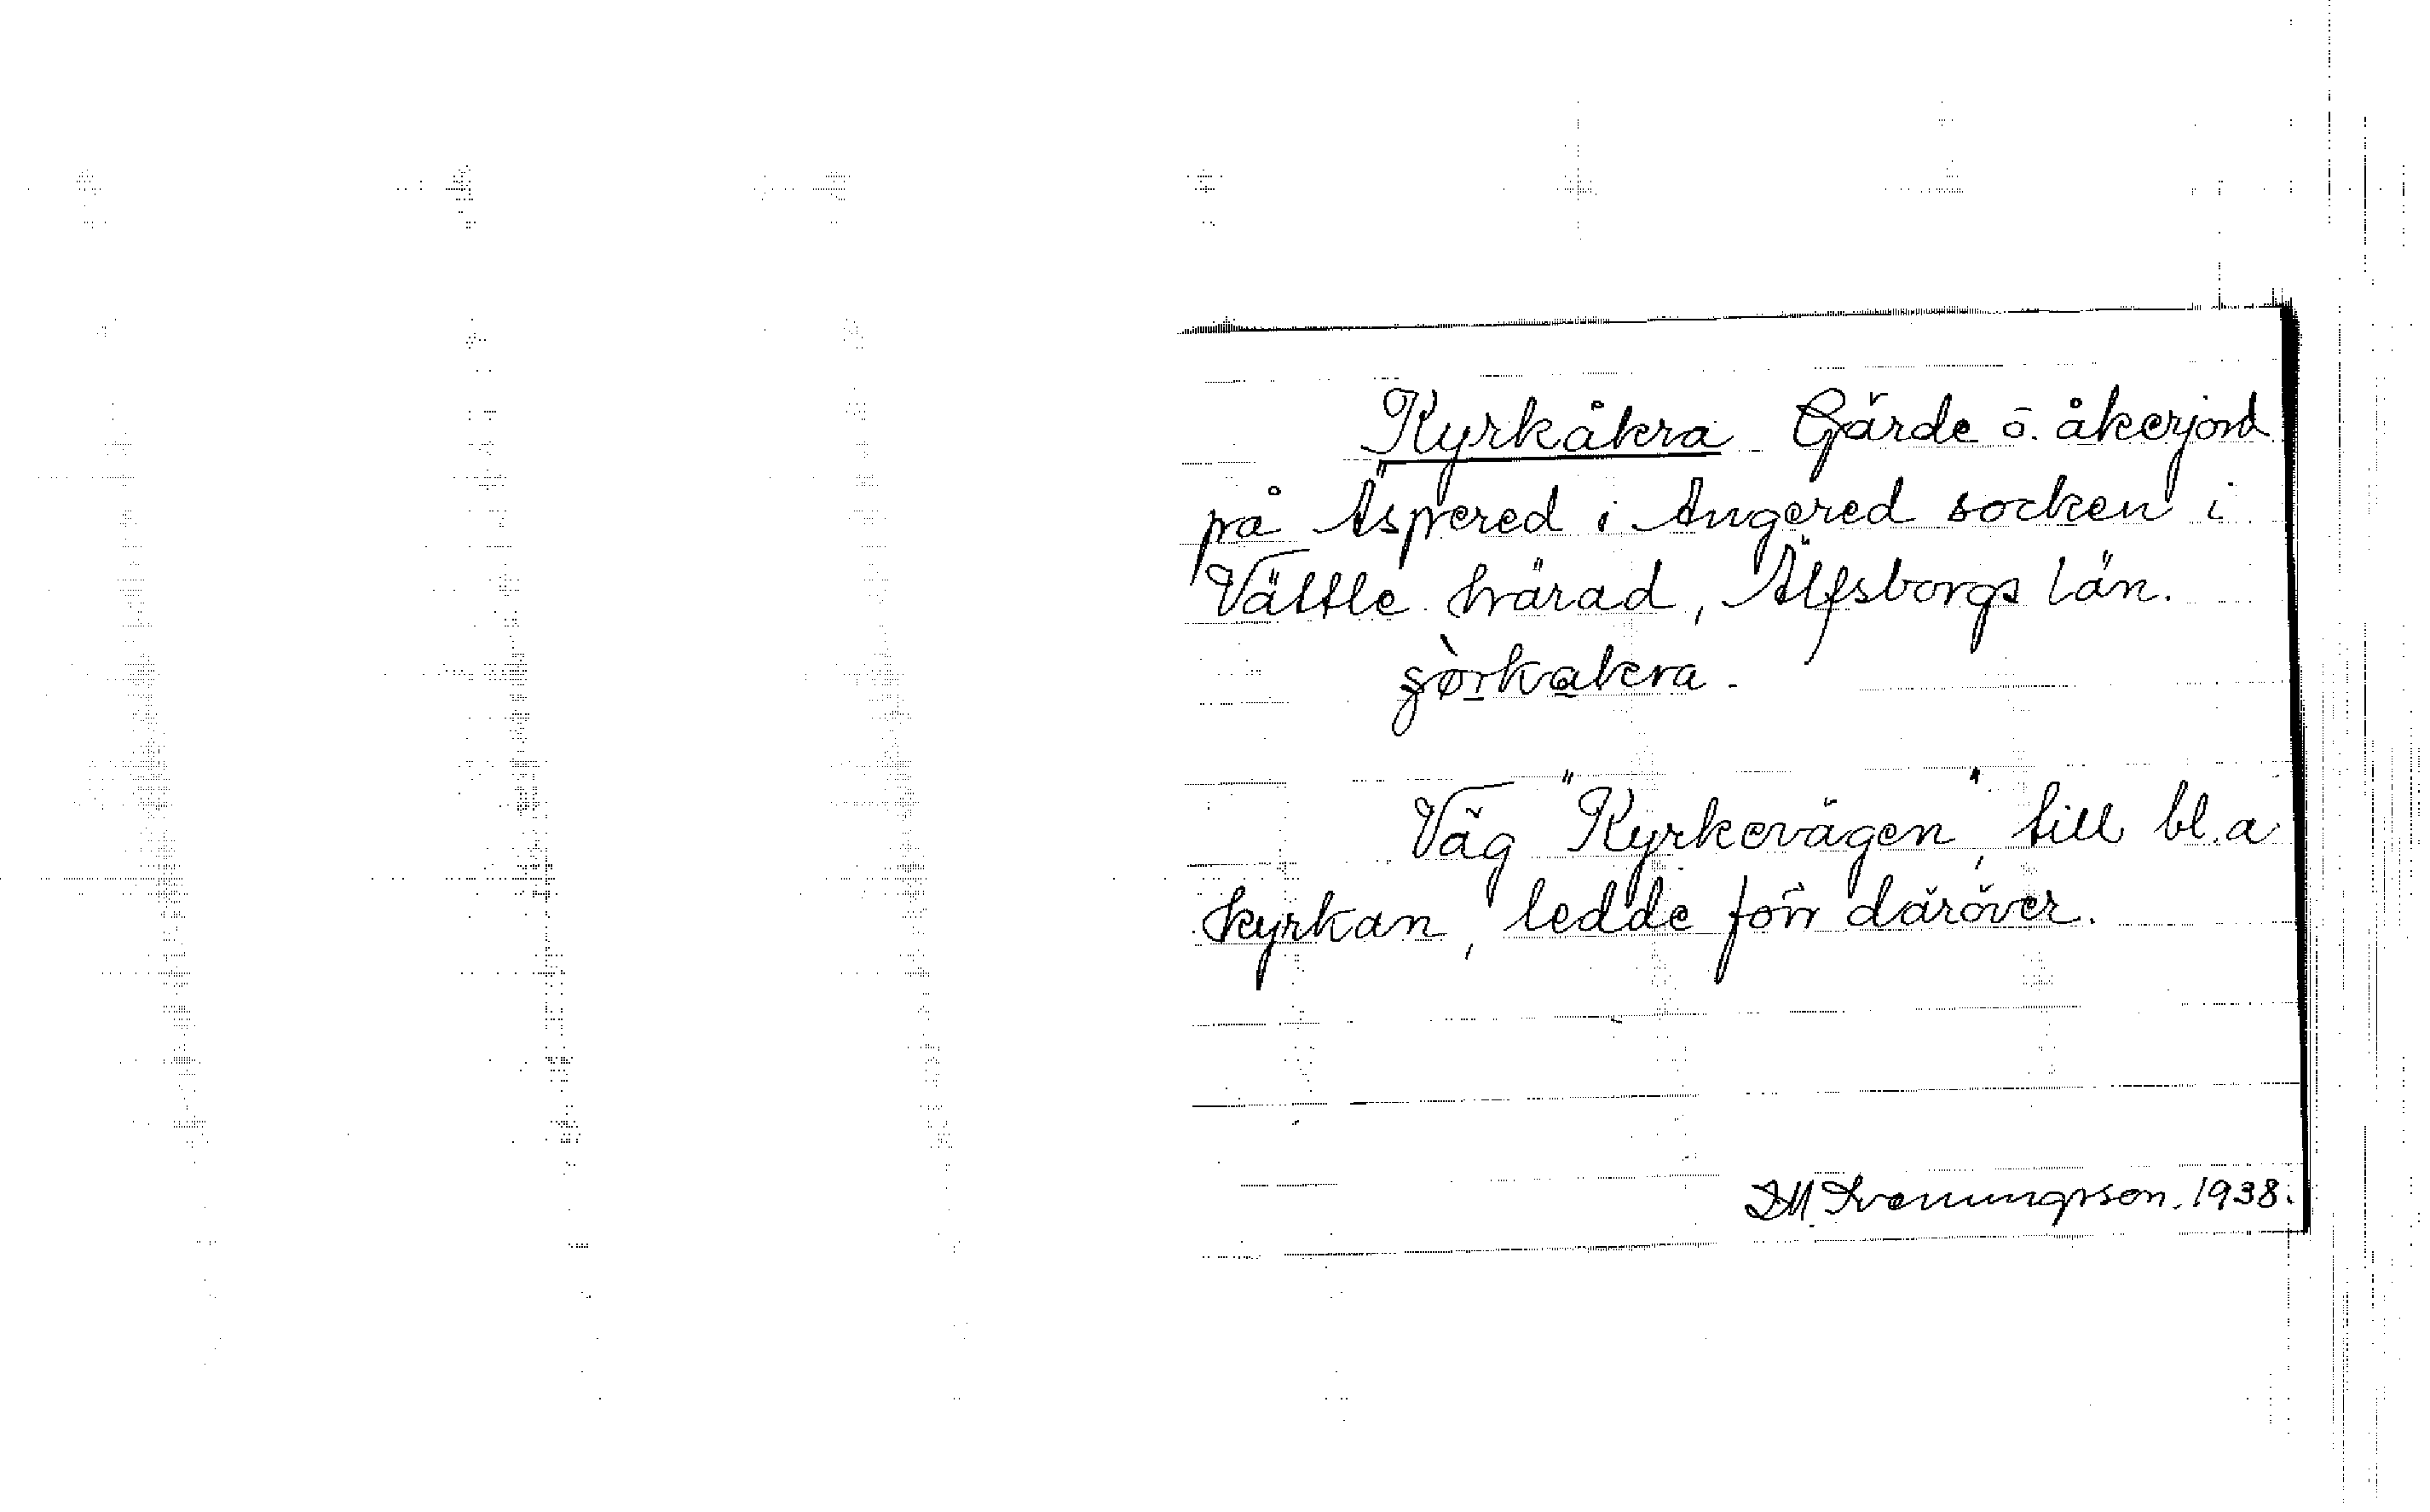 Kyrkåkra Gärde o. åkerjord
på Äspered i Angered socken i
Vättle härad, Älfsborgs län.
Väg "Kyrkevägen", till bl.a.
kyrkan, ledde förr däröver.
1938.